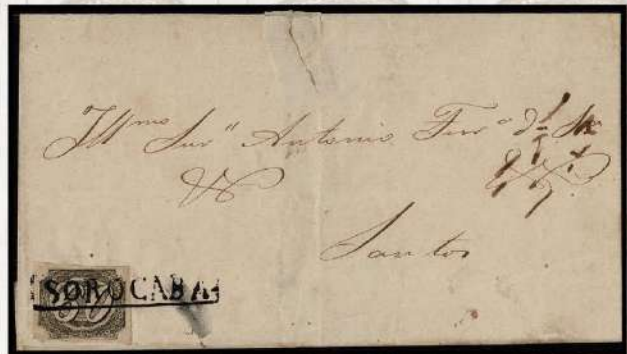 Illmo Snr Antonio Ferro da Sa
Santos
SOROCABA
60